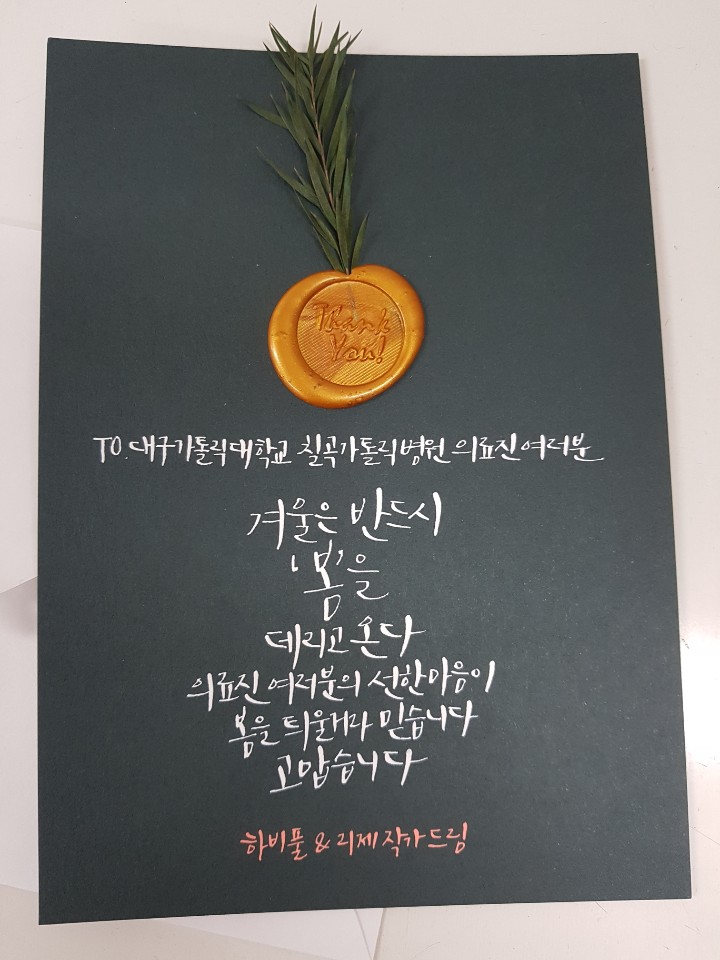 Thank
You!
TO.대구가톨릭대학교 칠곡가톨릭병원 의료진 여러분
겨울은 반드시
'봄'을
데리고 온다
의료진 여러분의 선한마음이
봄을 틔울거라 믿습니다
고맙습니다
하비풀 & 리제 작가 드림